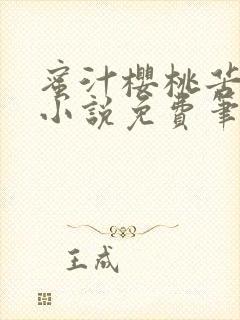 蜜汁櫻桃苦
小說免費筆
王成